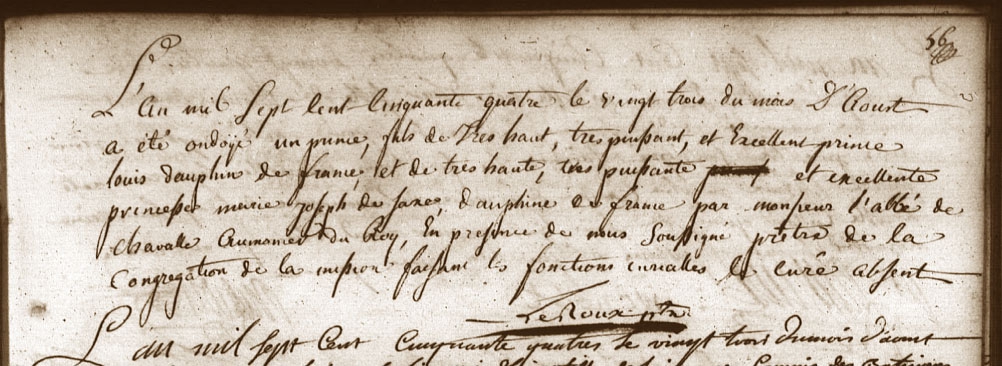 56
L'an mil sept cent cinquante quatre le vingt trois du mois D'Aoust
a été ondoyé un prince, fils de Tres haut, tres puissant, et Excellent prince
louis dauphin de france, et de tres haute, tres puissante et excellente
princesse marie joseph de saxe, dauphine de france par monsieur l'abbé de
Chavalle Aumonier du Roy, En presence de nous Soussigné prêtre de la
Congregation de la mission faisant les fonctions curialles le curé absent
LeRoux ptre
Lan mil sept Cent Cinquante quatres le vingt trois dumois d'aoust